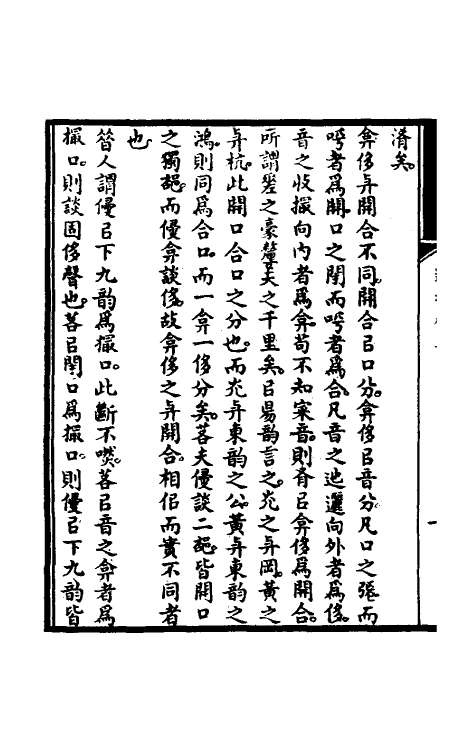 淆矣。
弇侈与開合不同。開合㠯口分。弇侈㠯音分。凡口之張而
呺者爲開。口之閉而呺者爲合。凡音之迆邐向外者爲侈。
音之收撮向内者爲弇。苟不知音。則肴㠯弇侈爲開合。
所謂差之豪釐。失之千里矣。㠯易韵言之。炗之与岡。黃之
与杭。此開口合口之分也。而炗与東韵之公。黃与東韵之
鴻。則同爲合口。而一弇一侈分矣。若夫侵談二韵。皆開口
之獨韵。而侵弇談侈。故弇侈之与開合。相佀而實不同者
也
人謂侵㠯下九韵爲撮口。此斷不然。若㠯音之弇者爲
撮口。則談固侈聲也。若㠯閉口爲撮口。則侵㠯下九韵皆